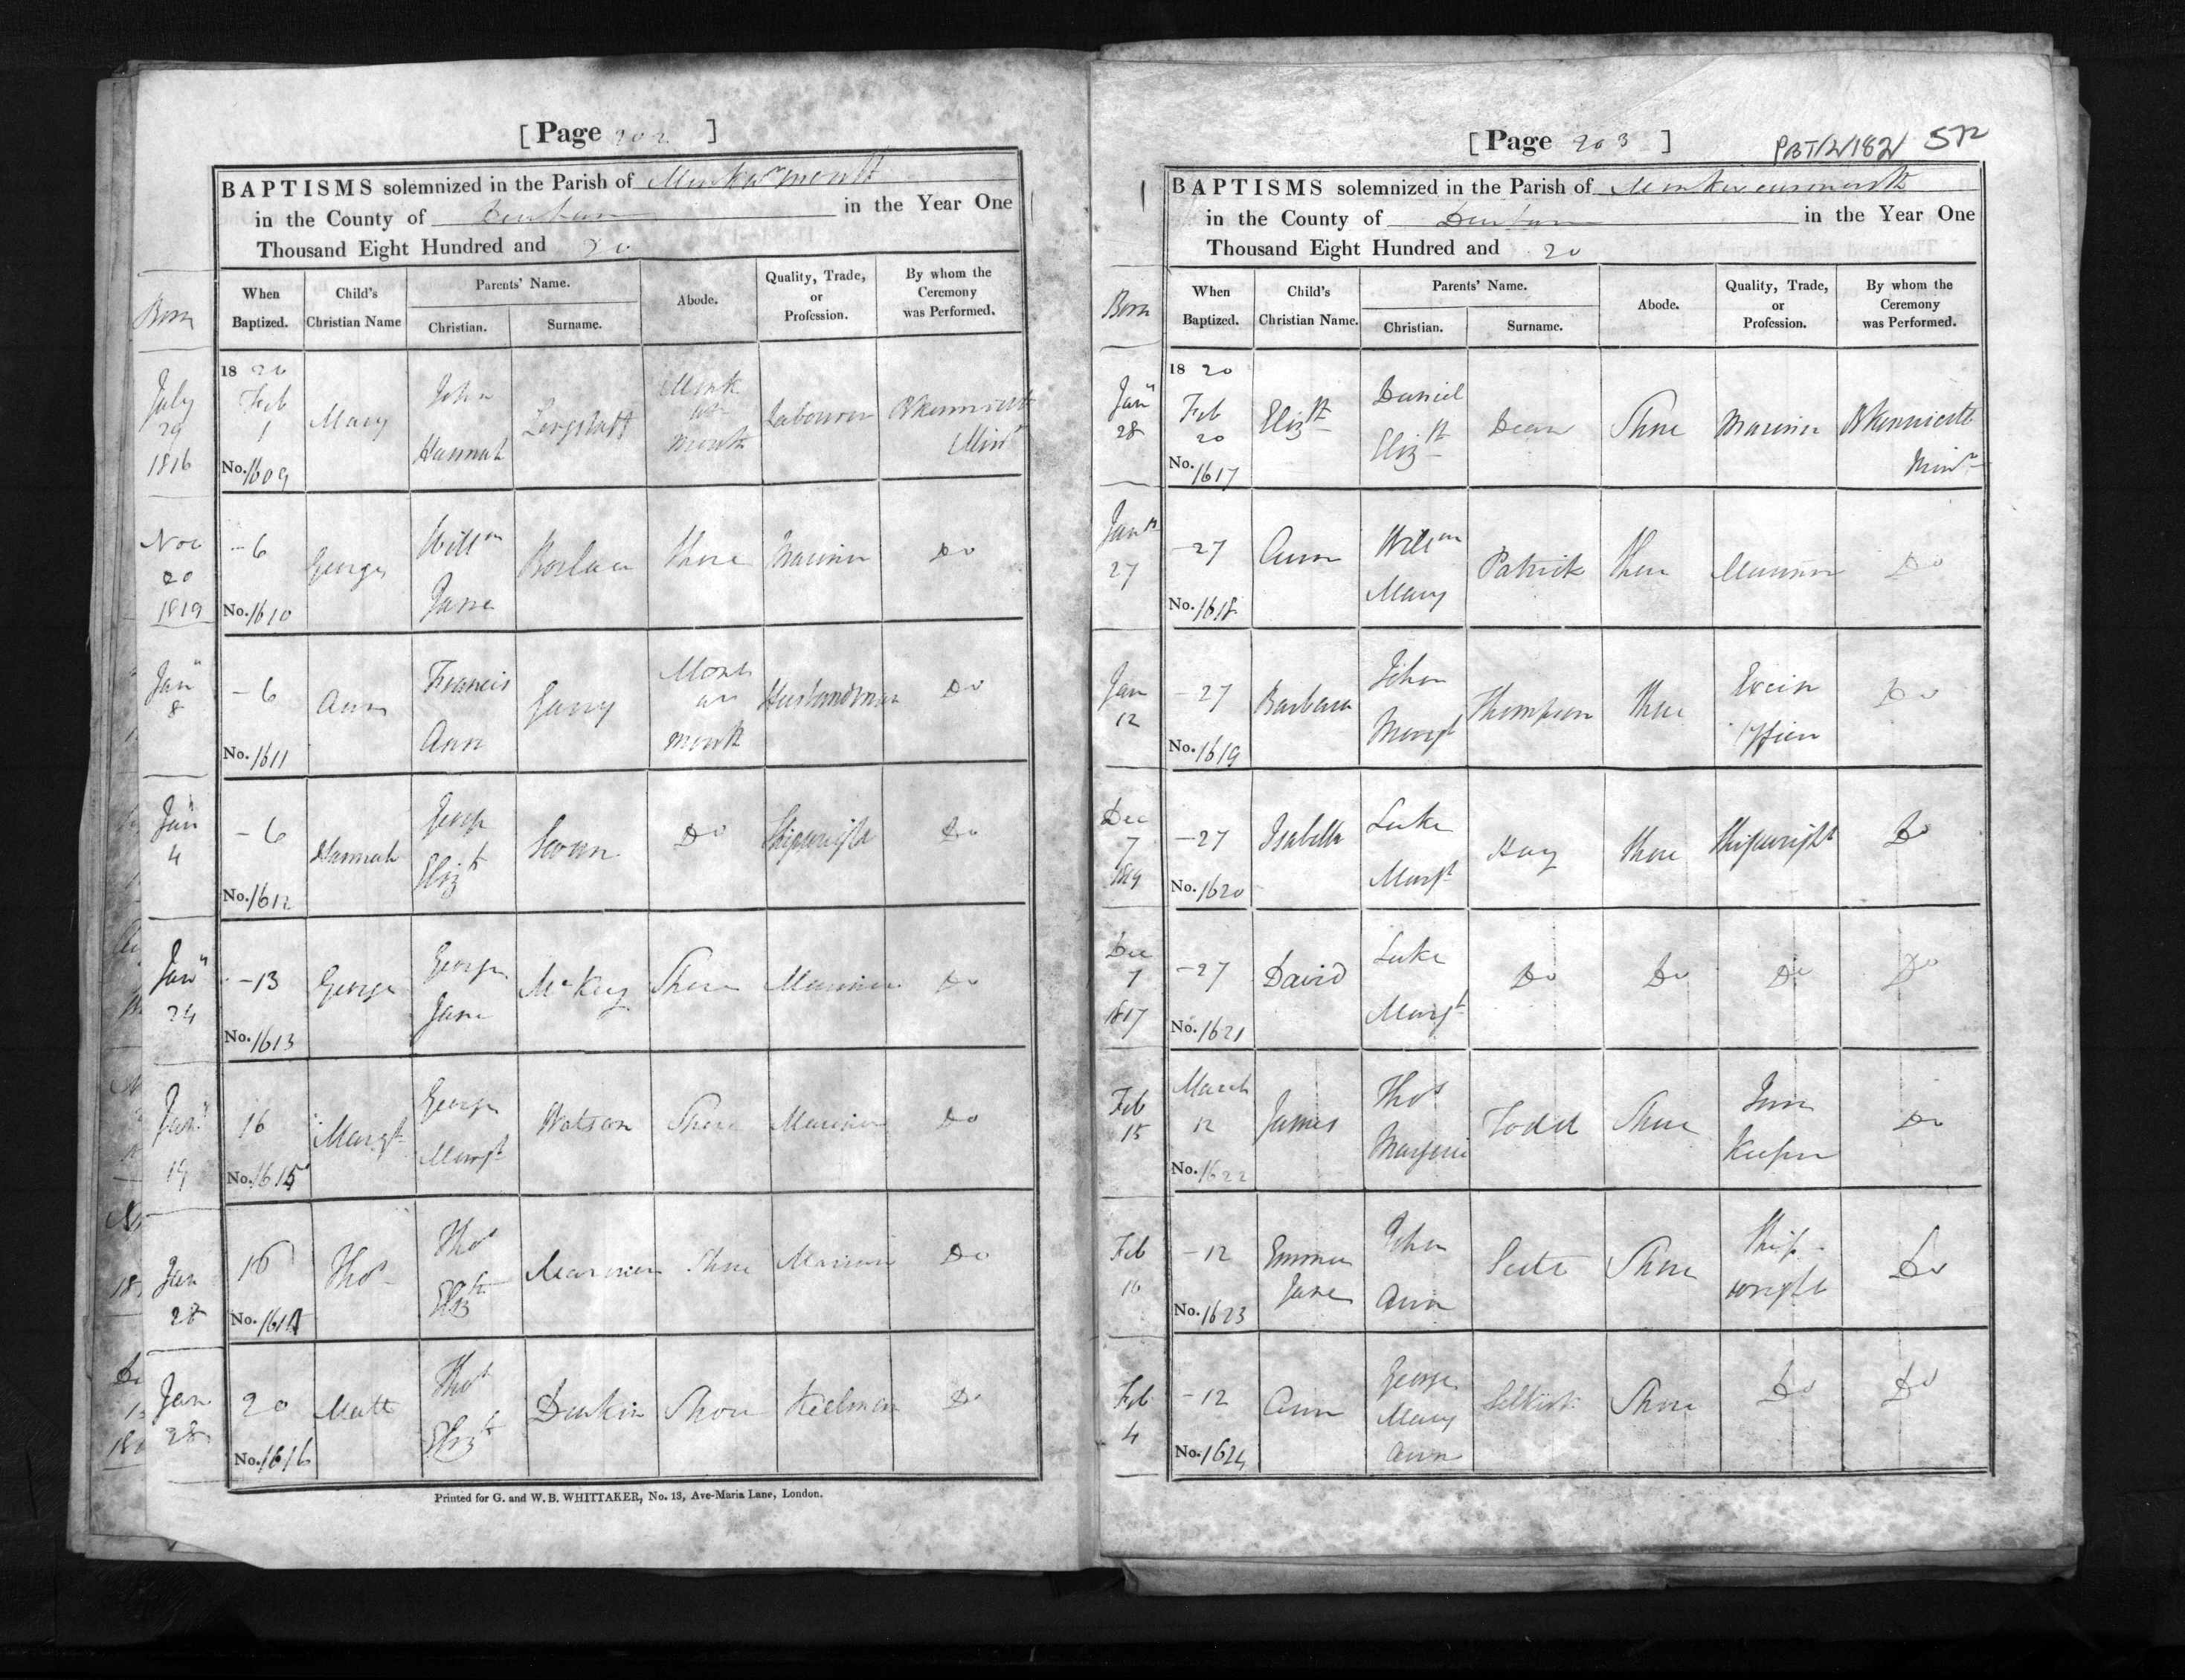 [ Page 202 ]
BAPTISMS solemnized in the Parish of Monkwrmouth
in the County of Durham in the Year One
Thousand Eight Hundred and 20
Born
When Baptized.
Child's Christian Name
Parents' Name.
Christian.
Surname.
Abode.
Quality, Trade, or Profession.
By whom the Ceremony was Performed.
July 29 1816
1820 Feb 1 No. 1609
Mary
John Hannah
Longstaff
Monk wr mouth
Labourer
B Kennicott Minr
Nov 20 1819
- 6 No. 1610
George
Willm Jane
Shore
Mariner
Do
Jany 8
- 6 No. 1611
Ann
Francis Ann
Monk wr mouth
Husbandman
Do
Jany 4
- 6 No. 1612
Hannah
George Elizth
Swan
Do
Shipwright
Do
Jany 24
- 13 No. 1613
George
George Jane
McKey
Shore
Mariner
Do
Jany 19
16 No. 1615
Margt
George Margt
Watson
Shore
Mariner
Do
Jan 28
16 No. 1614
Thos
Thos Elizth
Shore
Mariner
Do
Jan 28
20 No. 1616
Matt
Thos Elizth
Dunkin
Shore
Keelman
Do
Printed for G. and W. B. WHITTAKER, No. 13, Ave-Maria Lane, London.
[ Page 203 ]
BAPTISMS solemnized in the Parish of Monkwearmouth
in the County of Durham in the Year One
Thousand Eight Hundred and 20
Born
When Baptized.
Child's Christian Name.
Parents' Name.
Christian.
Surname.
Abode.
Quality, Trade, or Profession.
By whom the Ceremony was Performed.
Jany 28
1820 Feb 20 No. 1617
Elizth
Daniel Elizth
Dean
Shore
Mariner
B Kennicott Minr
Jany 27
- 27 No. 1618
Ann
Willm Mary
Patrick
Shore
Mariner
Do
Jan 12
- 27 No. 1619
Barbara
John Margt
Thompson
Shore
Excise Officer
Do
Dec 7 1819
- 27 No. 1620
Isabella
Luke Margt
Hay
Shore
Shipwright
Do
Dec 7 1817
- 27 No. 1621
David
Luke Margt
Do
Do
Do
Do
Feb 15
March 12 No. 1622
James
Thos Marjerie
Todd
Shore
Inn Keeper
Do
Feb 10
- 12 No. 1623
Emma Jane
John Ann
Shore
Ship-wright
Do
Feb 4
- 12 No. 1624
Ann
George Mary Ann
Selkirk
Shore
Do
Do